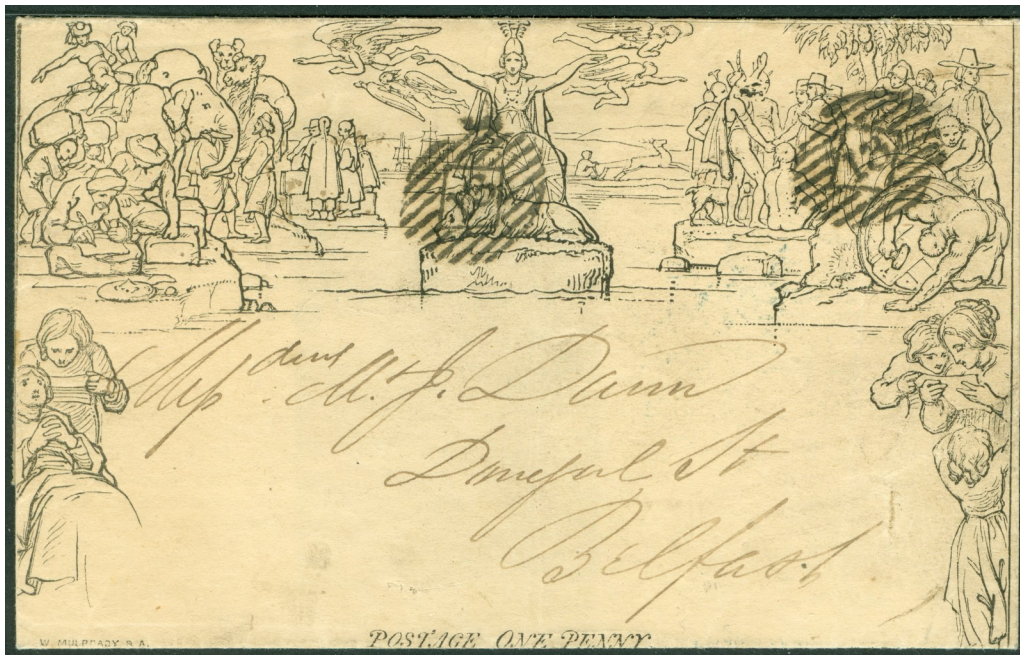 M. & J. Dunn
Donegal St
Belfast
W. MULREADY R.A.
POSTAGE ONE PENNY.